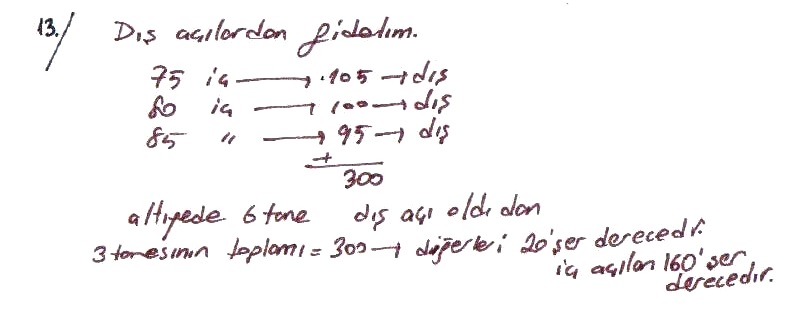 13./ Dış açılardan gidelim.
75 iç → 105 → dış
80 iç → 100 → dış
85 " → 95 → dış
+
300
altıgede 6 tane dış açı oldı dan
3 tanesinin toplamı = 300 → diğerleri 20'şer derecedir.
iç açıları 160'şer
derecedir.